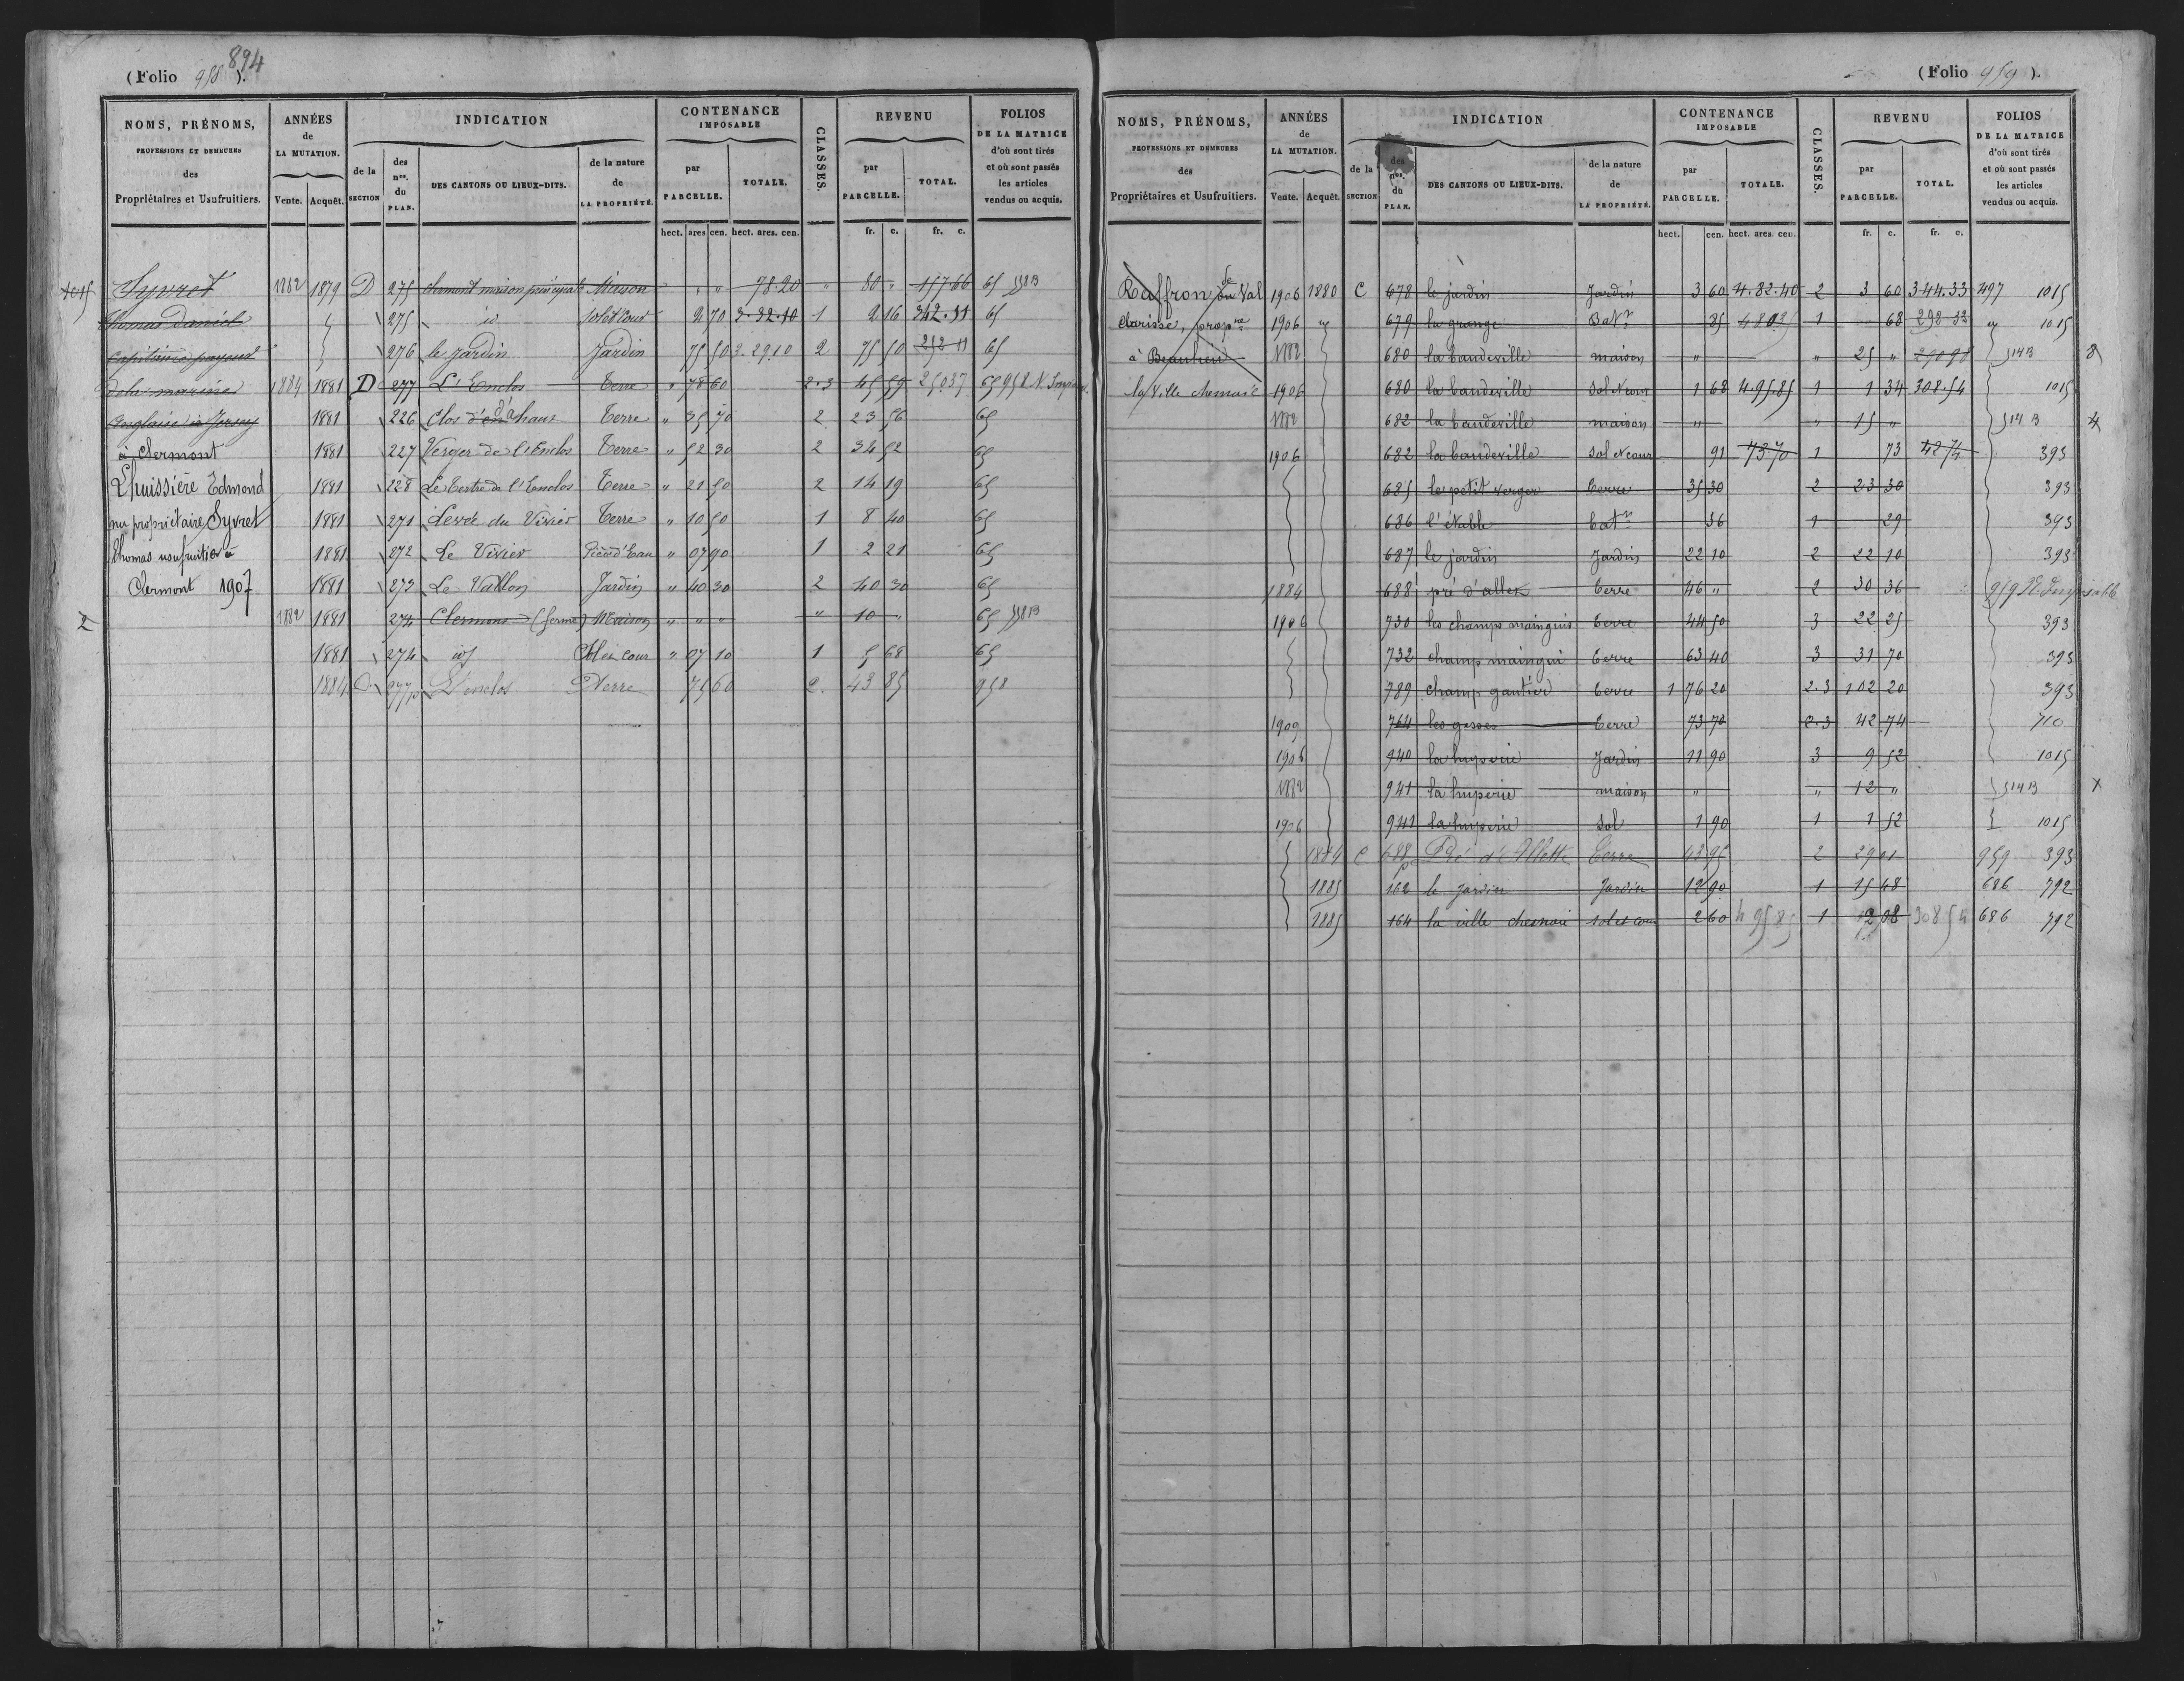 894
(Folio 958).
NOMS, PRÉNOMS, PROFESSIONS ET DEMEURES des Propriétaires et Usufruitiers.
ANNÉES de LA MUTATION. Vente. Acquêt.
INDICATION de la SECTION des nos. du PLAN. DES CANTONS OU LIEUX-DITS. de la nature de LA PROPRIÉTÉ.
CONTENANCE IMPOSABLE par PARCELLE. TOTALE.
CLASSES.
REVENU par PARCELLE. TOTAL.
FOLIOS DE LA MATRICE d'où sont tirés et où sont passés les articles vendus ou acquis.
hect. ares cen. hect. ares. cen. fr. c. fr. c.
Syvret 1882 1879 D 275 clermont maison principale Maison " " " 78.20 " 80 " 157.66 65
Thomas Daniel 275 id sol et cour 2 70 3.32.10 1 2 16 342.11 65
276 le Jardin Jardin 75 50 3.29.10 2 75 50 252 11 65
de la marine 1884 1881 D 277 L'Enclos Terre " 78 60 2.3 45 59 250.37 65 958 N. Imp
Anglaise à Jersey 1881 226 Clos d'à haut Terre " 35 70 2 23 56 65
à Clermont 1881 227 Verger de l'Enclos Terre " 52 30 2 34 52 65
Lhuissière Edmond 1881 228 Le Tertre de l'Enclos Terre " 21 50 2 14 19 65
nu propriétaire Syvret 1881 271 Levée du Vivier Terre " 10 50 1 8 40 65
Thomas usufruitier à 1881 272 Le Vivier Pièce d'Eau " 07 90 1 2 21 65
Clermont 1907 1881 273 Le Vallon Jardin " 40 30 2 40 30 65
2 1882 1881 274 Clermont (ferme) Maison " " " " 10 " 65
1881 274 id Sol et cour " 07 10 1 5 68 65
1884 D 277p L'enclos Terre 75 60 2. 43 85 958
(Folio 959).
NOMS, PRÉNOMS, PROFESSIONS ET DEMEURES des Propriétaires et Usufruitiers.
ANNÉES de LA MUTATION. Vente. Acquêt.
INDICATION de la SECTION des nos. du PLAN. DES CANTONS OU LIEUX-DITS. de la nature de LA PROPRIÉTÉ.
CONTENANCE IMPOSABLE par PARCELLE. TOTALE.
CLASSES.
REVENU par PARCELLE. TOTAL.
FOLIOS DE LA MATRICE d'où sont tirés et où sont passés les articles vendus ou acquis.
hect. cen. hect. ares. cen. fr. c. fr. c.
Raffron de Val 1906 1880 C 678 le jardin Jardin 3 60 4.82.40 2 3 60 344.33 497 1015
Clarisse, propre 1906 679 la grange Batn 85 1 " 68 292 33 1015
à Beaulieu 1882 680 la baudeville maison " " 25 " 514 B 8
la Ville chesnaie 1906 680 la baudeville sol et cour 1 68 4.95.85 1 1 34 308.54 1015
1882 682 la baudeville maison " " 15 " 514 B 4
1906 682 la baudeville sol et cour 91 73 70 1 73 42 74 393
685 le petit verger terre 35 30 2 23 30 393
686 l'étable batn 36 1 29 393
687 le jardin Jardin 22 10 2 22 10 393
1884 688 pré d'allet terre 46 " 2 30 36 959
1906 730 les champs mainguis terre 44 50 3 22 25 393
732 champ maingui terre 63 40 3 31 70 393
789 champ gautier terre 1 76 20 2.3 102 20 393
1909 764 les gasses terre 73 70 2.3 42 74 710
1906 940 la huperie Jardin 11 90 3 9 52 1015
1882 941 la huperie maison " " 12 " 514 B X
1906 941 la huperie Sol 1 90 1 1 52 1015
1884 C 688p Pré d'Allette Terre 43 95 2 29 01 959 393
1885 162 le jardin Jardin 12 90 1 15 48 686 792
1885 164 la ville chesnaie sol et cour 2 60 4 95 85 1 2 08 308 54 686 792